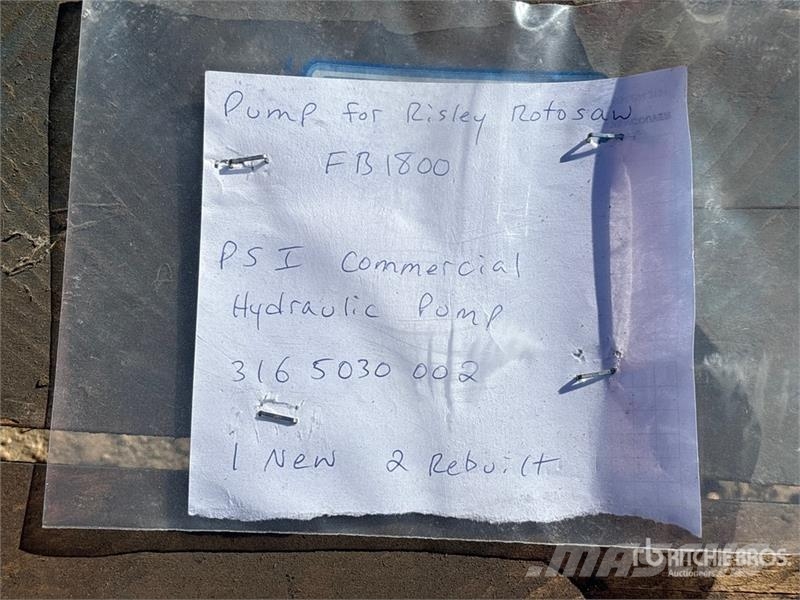 Pump for Risley Rotosaw
FB1800
PSI Commercial
Hydraulic Pump
316 5030 002
1 New 2 Rebuilt
rb RITCHIE BROS.
Auctioneers